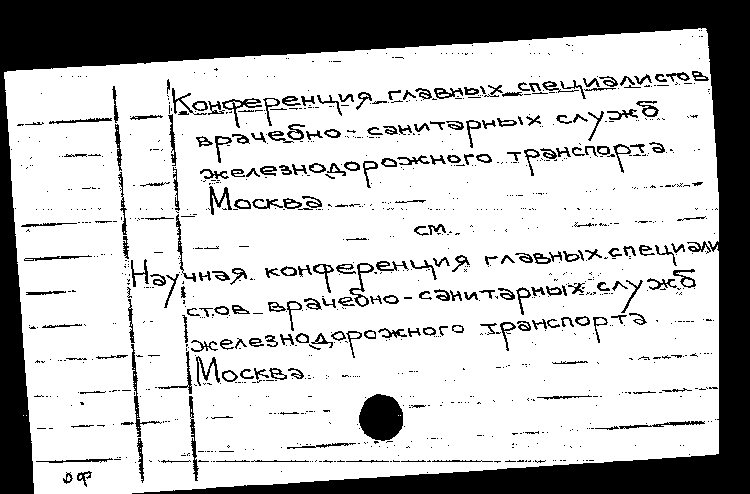 Конференция главных специалистов
врачебно-санитарных служб
железнодорожного транспорта.
Москва.
см.
Научная конференция главных специали
стов врачебно-санитарных служб
железнодорожного транспорта
Москва